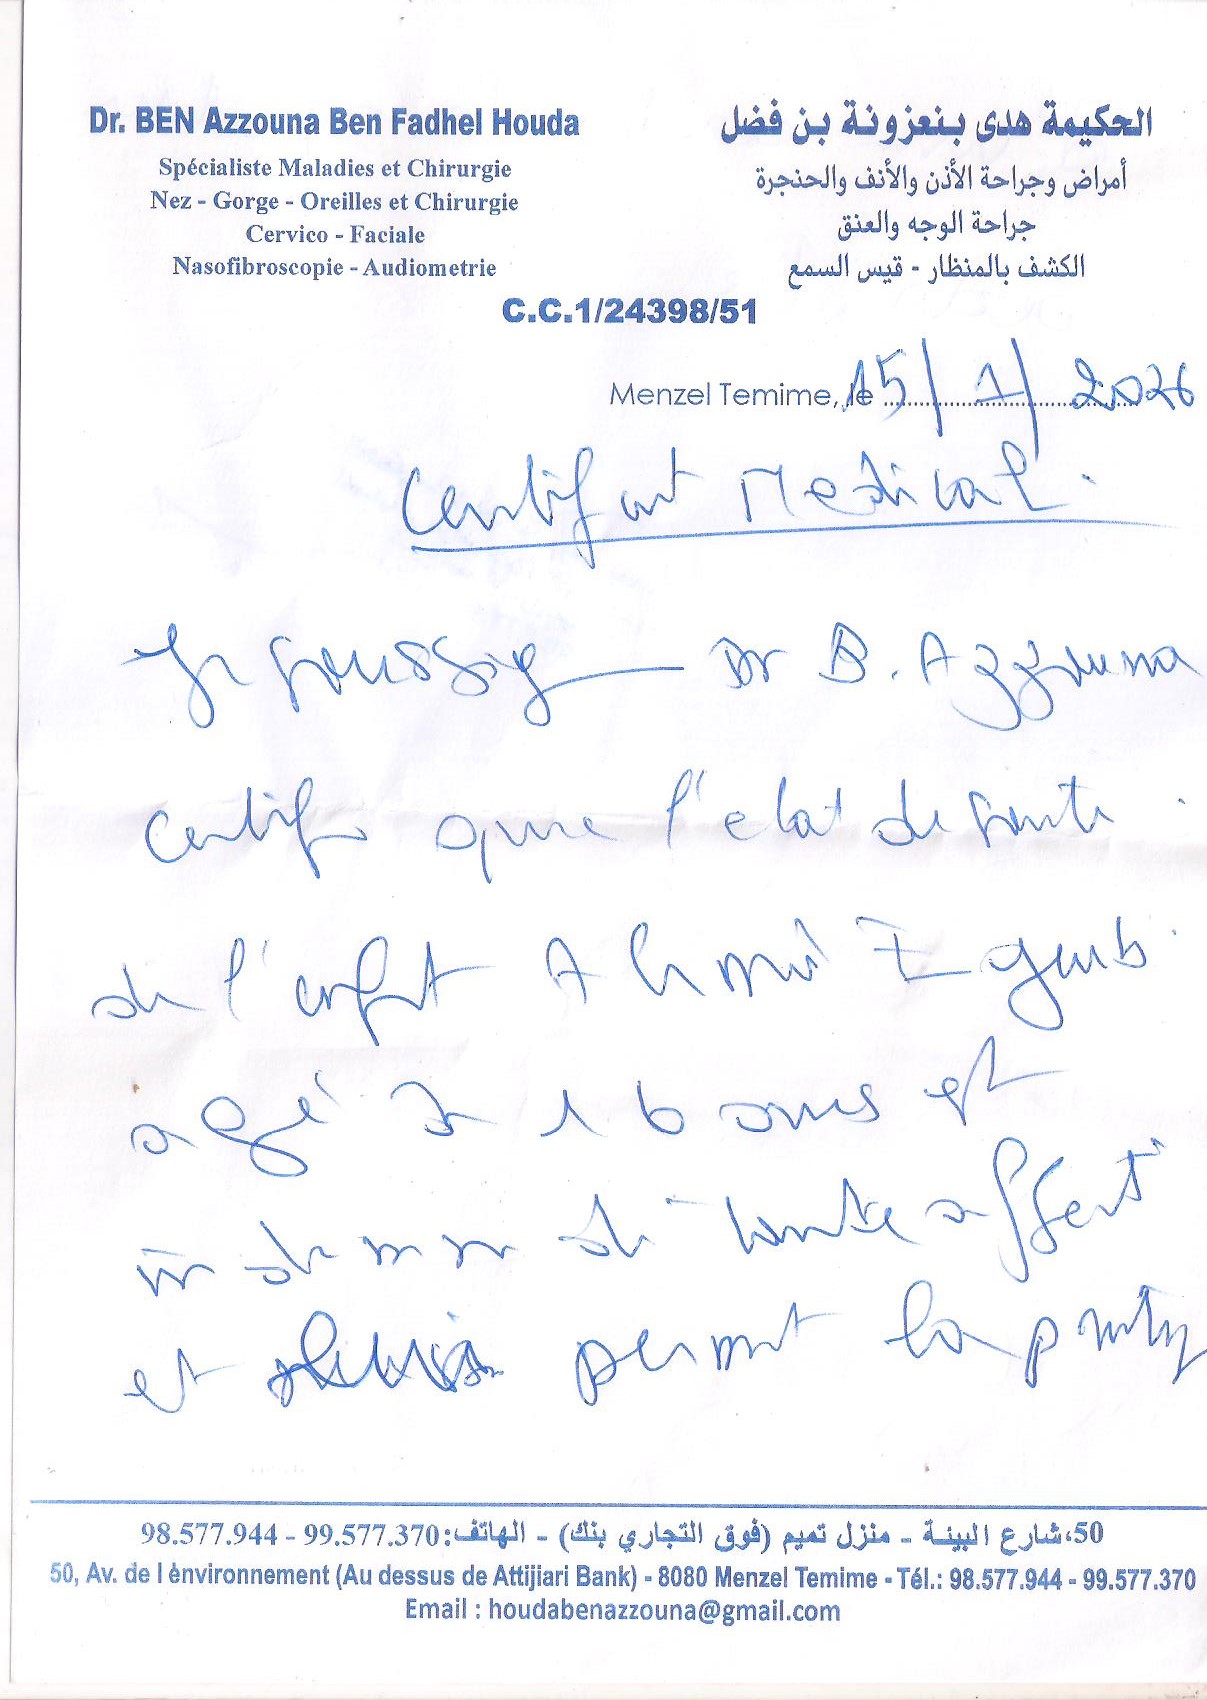 Dr. BEN Azzouna Ben Fadhel Houda
Spécialiste Maladies et Chirurgie
Nez - Gorge - Oreilles et Chirurgie
Cervico - Faciale
Nasofibroscopie - Audiometrie
الحكيمة هدى بنعزونة بن فضل
أمراض وجراحة الأذن والأنف والحنجرة
جراحة الوجه والعنق
الكشف بالمنظار - قيس السمع
C.C.1/24398/51
Menzel Temime, le 15/1/2026
Certificat Medical.
Je soussigne Dr B. Azzouna
certifie que l'état de santé
de l'enfant Ahmed
agé de 16 ans est
et permet la
50، شارع البيئة - منزل تميم (فوق التجاري بنك) - الهاتف: 99.577.370 - 98.577.944
50, Av. de l ènvironnement (Au dessus de Attijiari Bank) - 8080 Menzel Temime - Tél.: 98.577.944 - 99.577.370
Email : houdabenazzouna@gmail.com